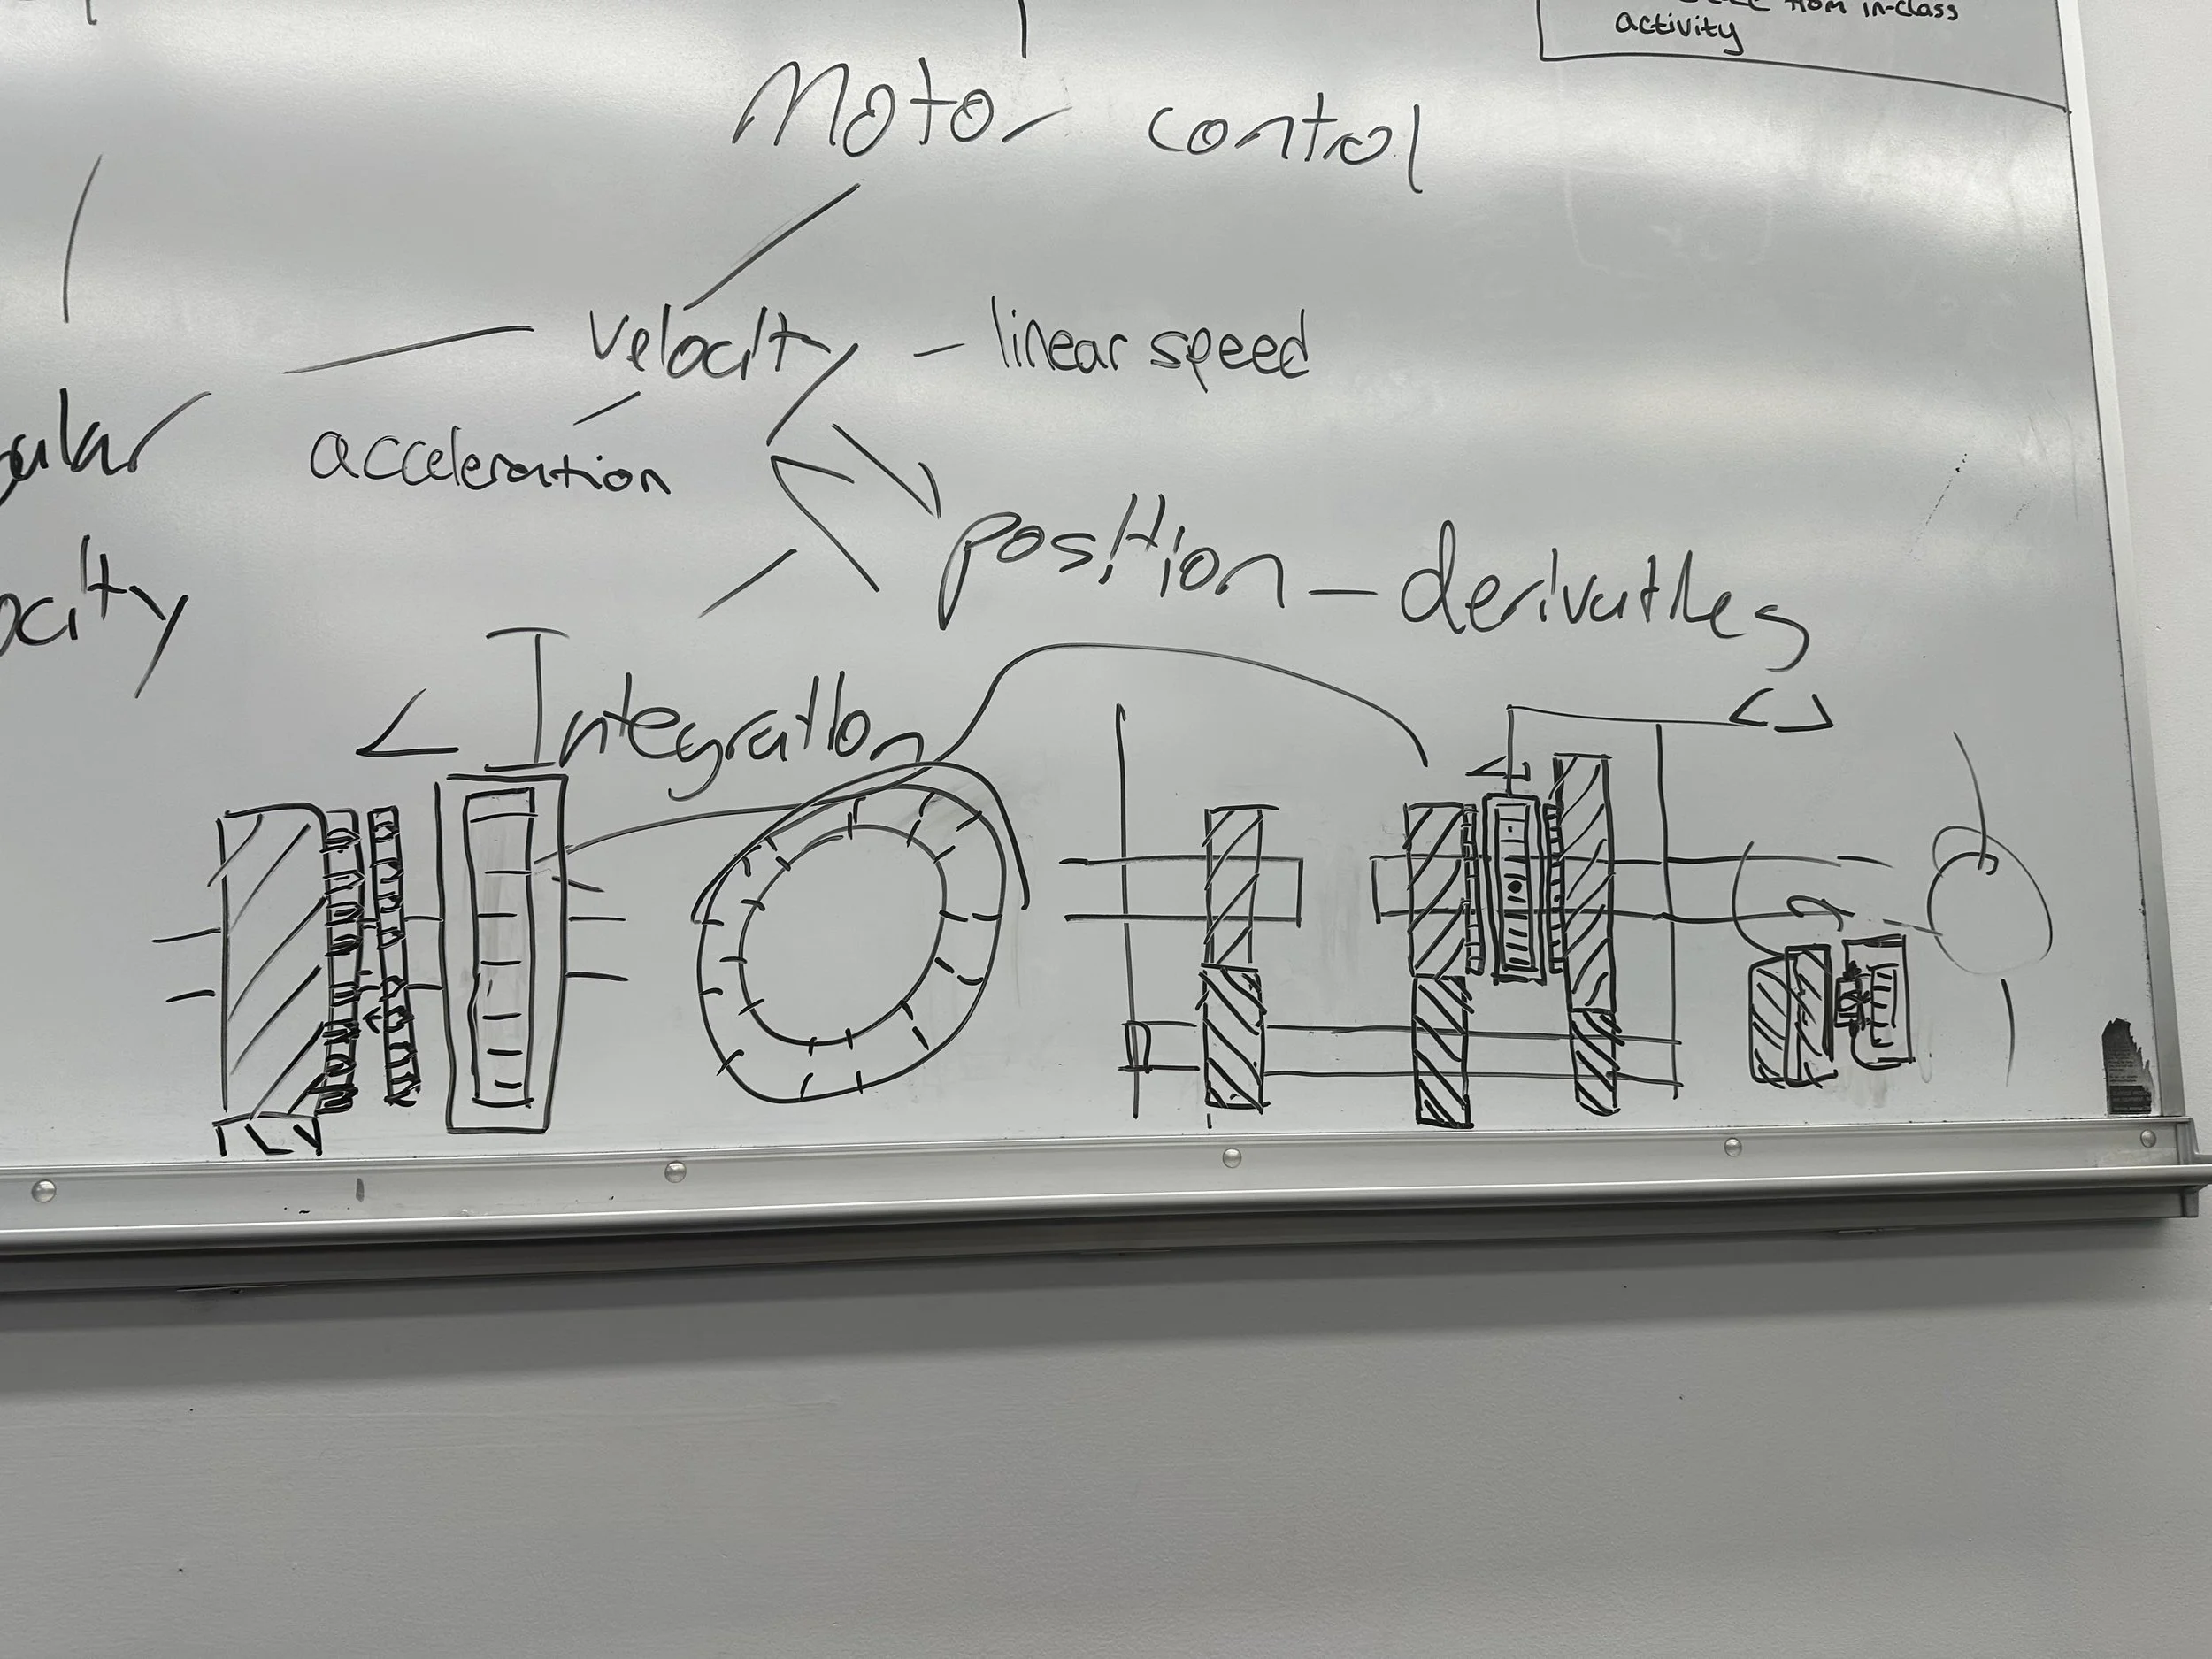 from in-class
activity
Motor control
velocity - linear speed
acceleration
position - derivatives
Integration